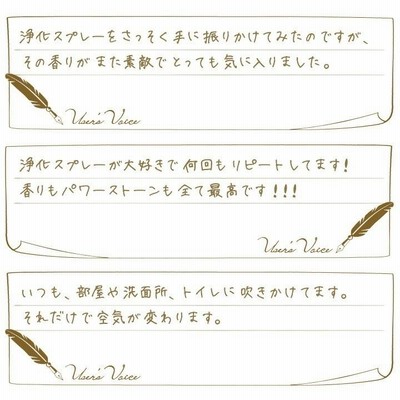 浄化スプレーをさっそく手に振りかけてみたのですが、
その香りがまた素敵でとっても気に入りました。
User's Voice
浄化スプレーが大好きで何回もリピートしてます!
香りもパワーストーンも全て最高です!!!
User's Voice
いつも、部屋や洗面所、トイレに吹きかけてます。
それだけで空気が変わります。
User's Voice